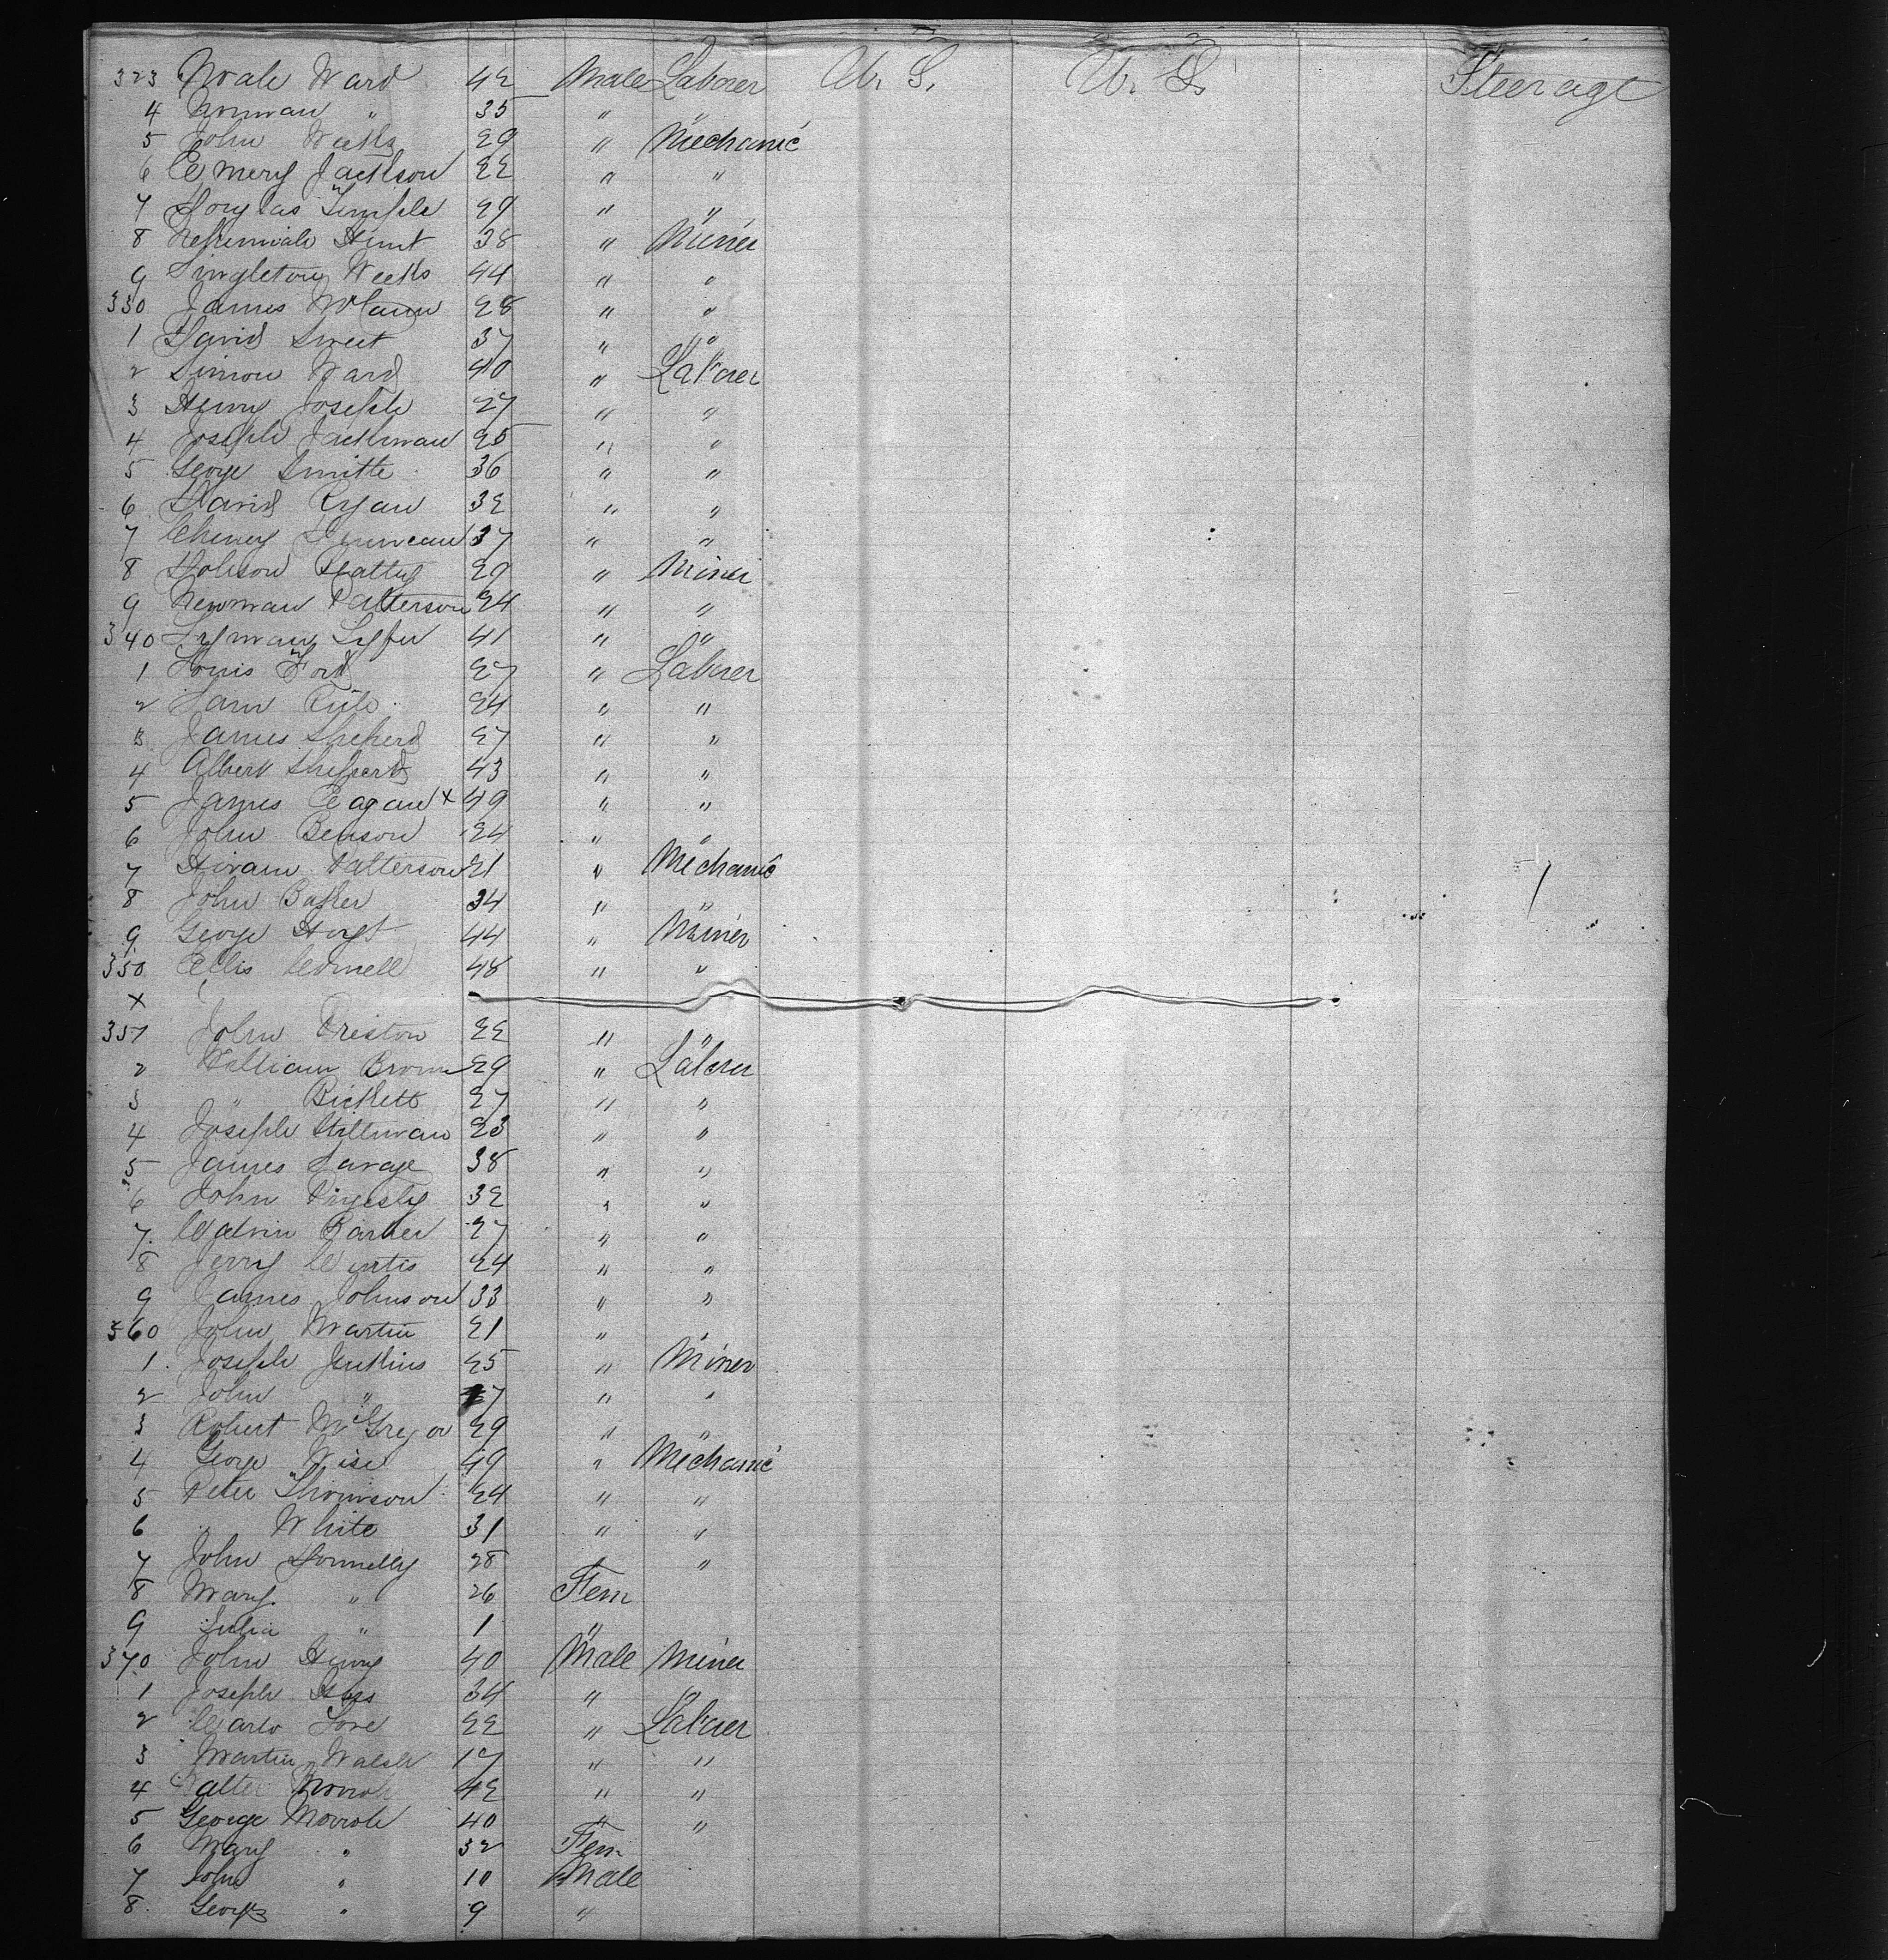 323 Noah Ward 42 Male Laborer U. S. U. S. Steerage
4 Norman " 35 " "
5 John Weeks 29 " Mechanic
6 Emery Jackson 22 " "
7 Douglas Temple 29 " "
8 Nehemiah Hunt 38 " Miner
9 Singleton Weeks 44 " "
330 James McCann 28 " "
1 David Sweet 37 " "
2 Simon Ward 40 " Laborer
3 Henry Joseph 27 " "
4 Joseph Jackman 25 " "
5 George Smith 36 " "
6 David Ryan 32 " "
7 Cheney 37 " "
8 Dobson Beatty 29 " Miner
9 Newman Patterson 24 " "
340 Lyman 41 " "
1 Louis Ford 27 " Laborer
2 Sam 24 " "
3 James Sheperd 27 " "
4 Albert Sheperd 43 " "
5 James Eagan x 49 " "
6 John Benson 24 " "
7 Hiram Patterson 21 " Mechanic
8 John Baker 34 " "
9 George Hoyt 44 " Miner
350 Ellis Cornell 48 " "
x
351 John Preston 22 " "
2 William Brown 29 " Laborer
3 " Ricketts 27 " "
4 Joseph Stillman 23 " "
5 James Savage 38 " "
6 John 32 " "
7. Calvin Barker 27 " "
8 Jerry Curtis 24 " "
9 James Johnson 33 " "
360 John Martin 21 " "
1. Joseph Jenkins 25 " Miner
2 John " 27 " "
3 Robert McGregor 29 " "
4 George Wise 49 " Mechanic
5 Peter Thomson 24 " "
6 " White 31 " "
7 John Donnelly 28 "
8 Mary " 26 Fem
9 Julia " 1 "
370 John Henry 40 Male Miner
1 Joseph Hess 34 " "
2 Carlo Love 22 " Laborer
3 Martin Walsh 17 " "
4 Walter 42 " "
5 George 40 " "
6 Mary " 32 Fem
7 John " 10 Male
8. George " 9 "